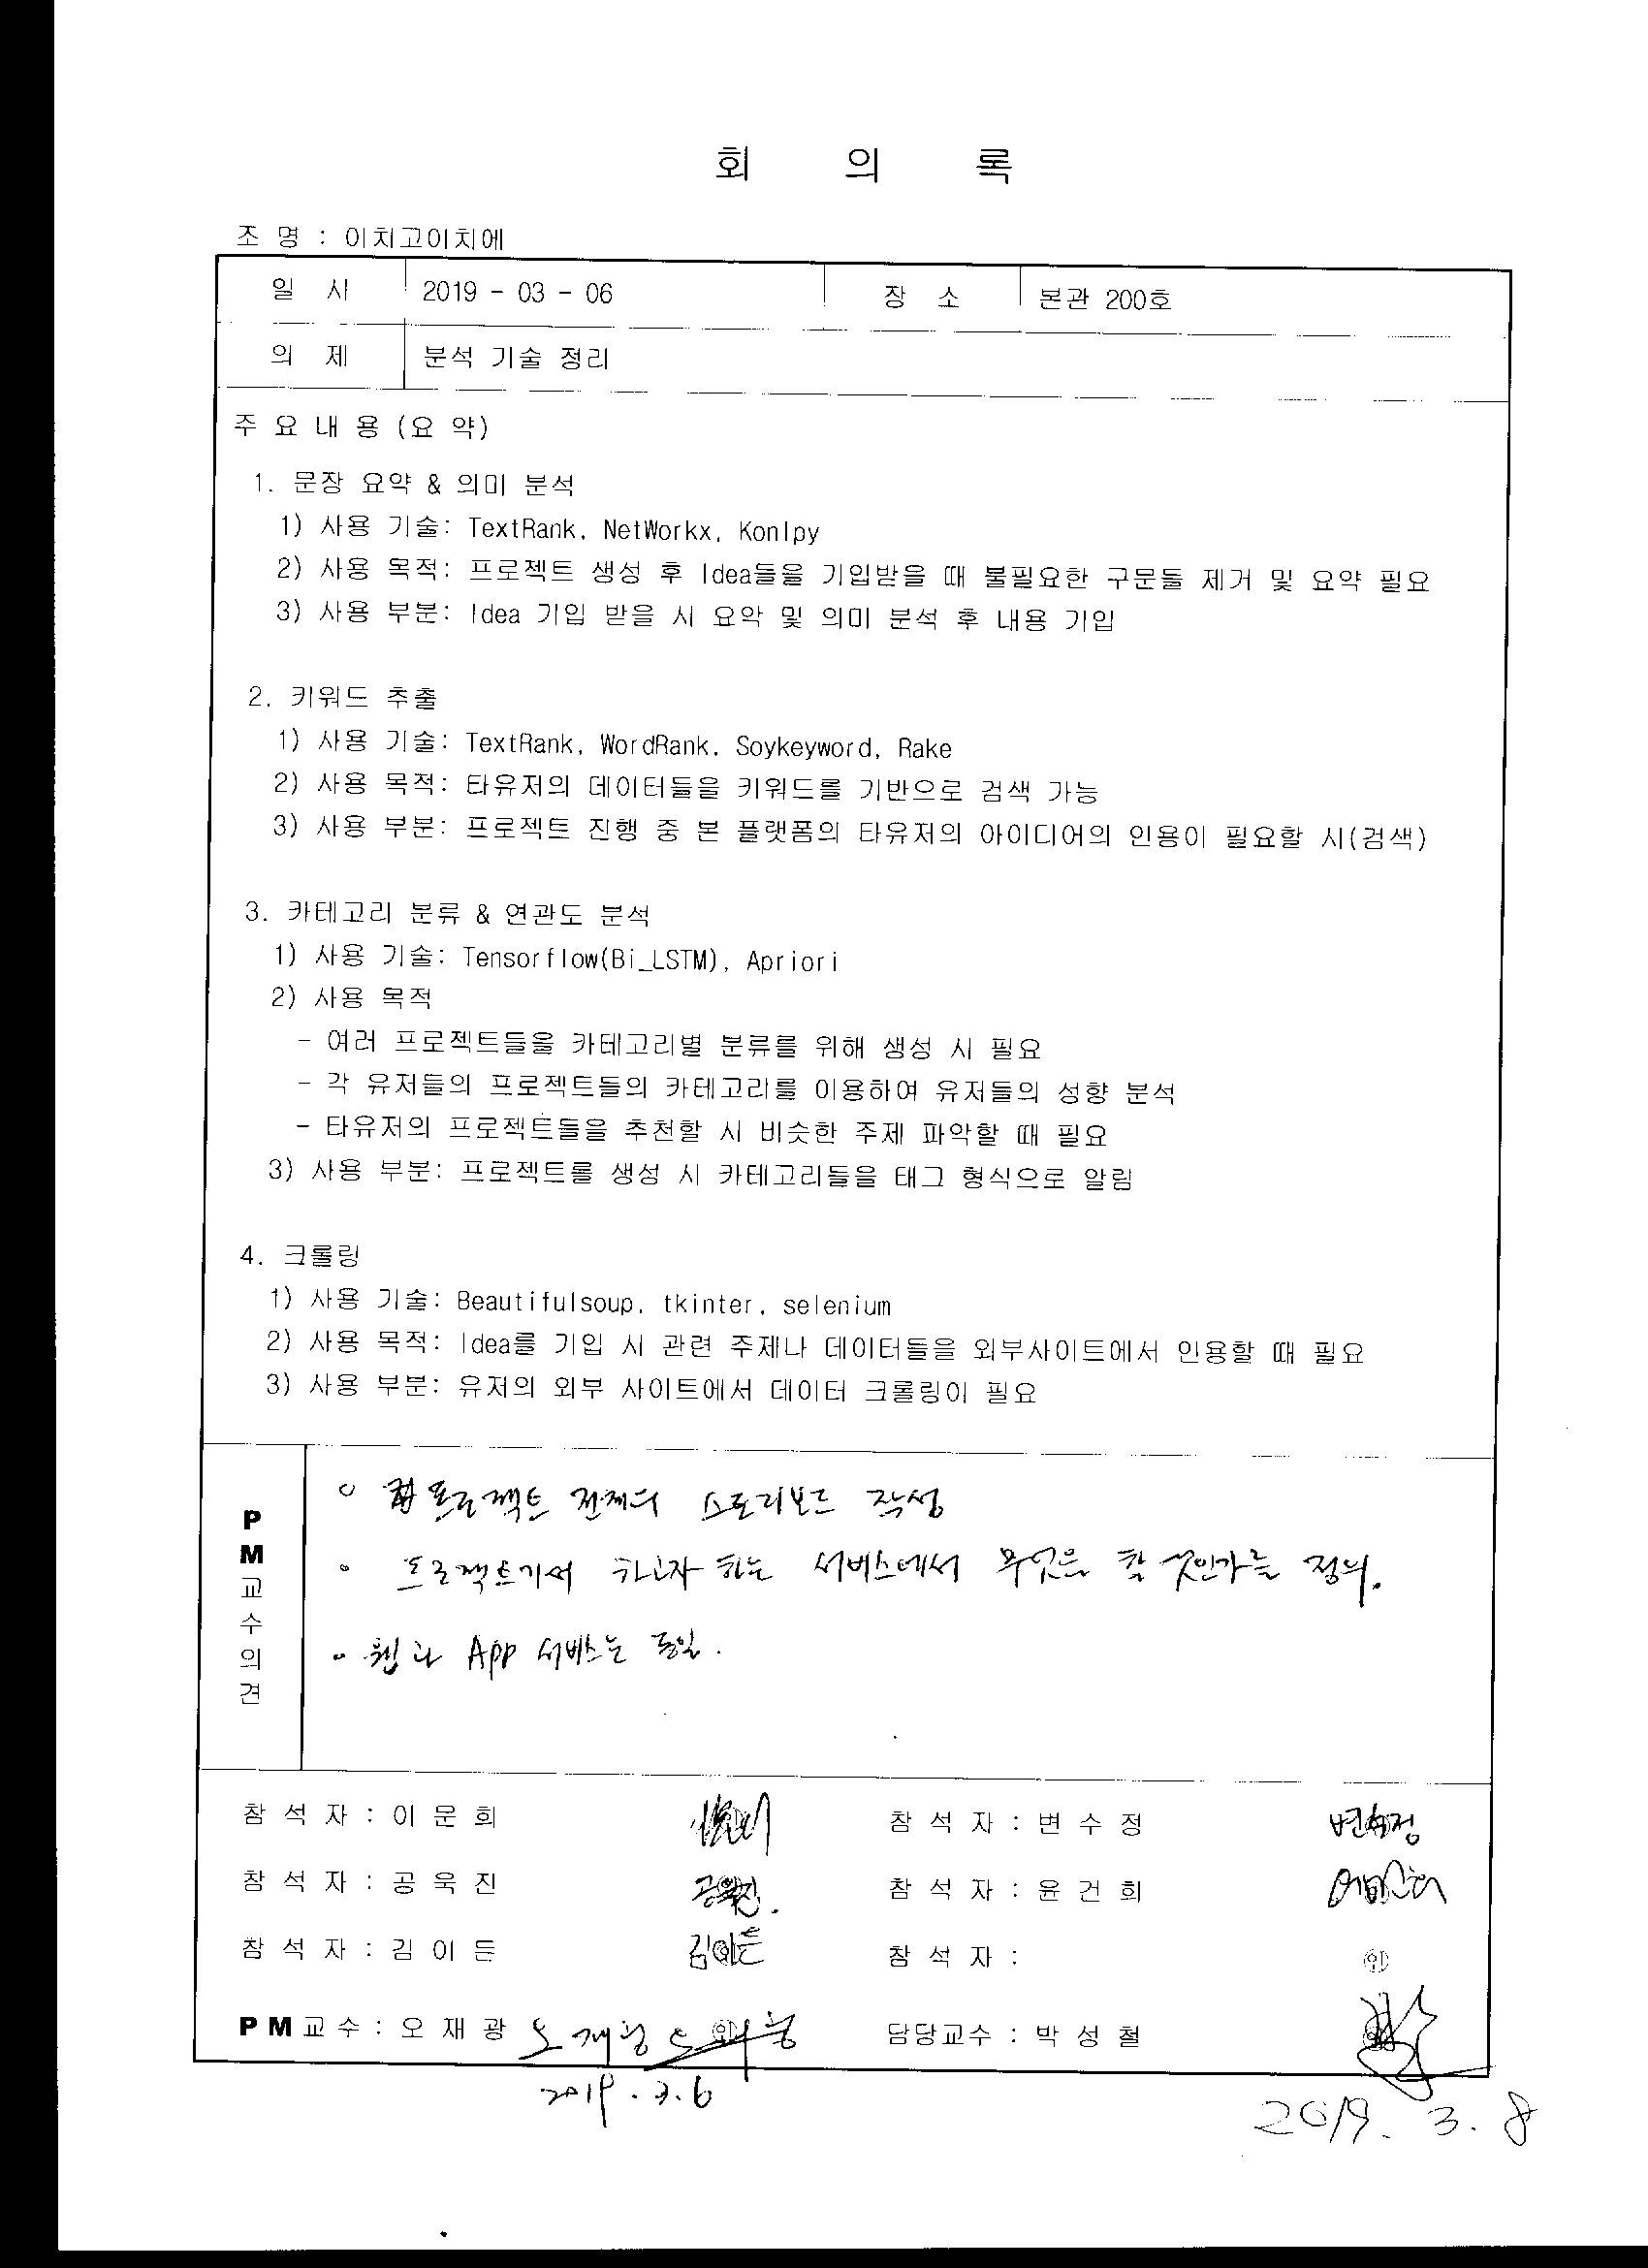 회 의 록
조 명 : 이치고이치에
일 시 2019 - 03 - 06 장 소 본관 200호
의 제 분석 기술 정리
주 요 내 용 (요 약)
1. 문장 요약 & 의미 분석
1) 사용 기술: TextRank, NetWorkx, Konlpy
2) 사용 목적: 프로젝트 생성 후 Idea들을 기입받을 때 불필요한 구문들 제거 및 요약 필요
3) 사용 부분: Idea 기입 받을 시 요약 및 의미 분석 후 내용 기입
2. 키워드 추출
1) 사용 기술: TextRank, WordRank, Soykeyword, Rake
2) 사용 목적: 타유저의 데이터들을 키워드를 기반으로 검색 가능
3) 사용 부분: 프로젝트 진행 중 본 플랫폼의 타유저의 아이디어의 인용이 필요할 시(검색)
3. 카테고리 분류 & 연관도 분석
1) 사용 기술: Tensorflow(Bi_LSTM), Apriori
2) 사용 목적
- 여러 프로젝트들을 카테고리별 분류를 위해 생성 시 필요
- 각 유저들의 프로젝트들의 카테고리를 이용하여 유저들의 성향 분석
- 타유저의 프로젝트들을 추천할 시 비슷한 주제 파악할 때 필요
3) 사용 부분: 프로젝트를 생성 시 카테고리들을 태그 형식으로 알림
4. 크롤링
1) 사용 기술: Beautifulsoup, tkinter, selenium
2) 사용 목적: Idea를 기입 시 관련 주제나 데이터들을 외부사이트에서 인용할 때 필요
3) 사용 부분: 유저의 외부 사이트에서 데이터 크롤링이 필요
PM교수의견
프로젝트 전체의 스토리보드 작성
프로젝트기서 하고자 하는 서비스에서 무엇을 할 것인가를 정의.
웹과 App 서비스는 동일.
참 석 자 : 이 문 희 참 석 자 : 변 수 정 변수정
참 석 자 : 공 욱 진 공욱진. 참 석 자 : 윤 건 희
참 석 자 : 김 이 든 김이든 참 석 자 : 인
PM교수 : 오 재 광 오재광 담당교수 : 박 성 철
2019. 3. 6
2019. 3. 8